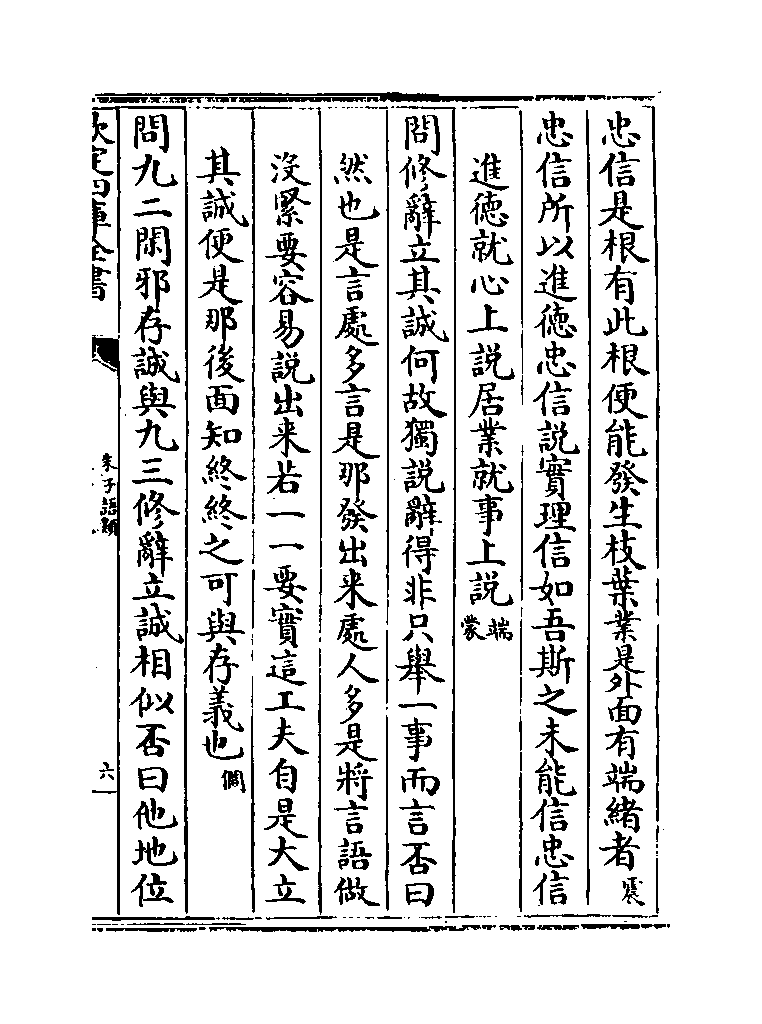 忠信是根有此根便能發生枝葉業是外面有端緒者震
忠信所以進徳忠信説實理信如吾斯之未能信忠信
進徳就心上説居業就事上説端蒙
問修辭立其誠何故獨説辭得非只舉一事而言否曰
然也是言處多言是那發出来處人多是將言語做
沒緊要容易説出来若一一要實這工夫自是大立
其誠便是那後面知終終之可與存義也僩
問九二閑邪存誠與九三修辭立誠相似否曰他地位
欽定四庫全書
朱子語類
六